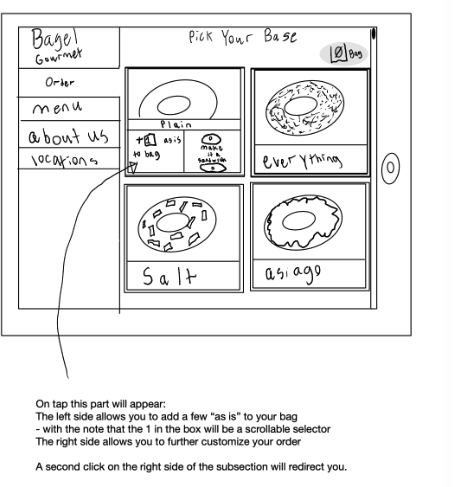 Bagel
Gourmet
Order
menu
about us
locations
Pick Your Base
0 Bag
Plain
+1 as is
to bag
make
it a
sandwich
everything
Salt
asiago
On tap this part will appear:
The left side allows you to add a few “as is” to your bag
- with the note that the 1 in the box will be a scrollable selector
The right side allows you to further customize your order
A second click on the right side of the subsection will redirect you.